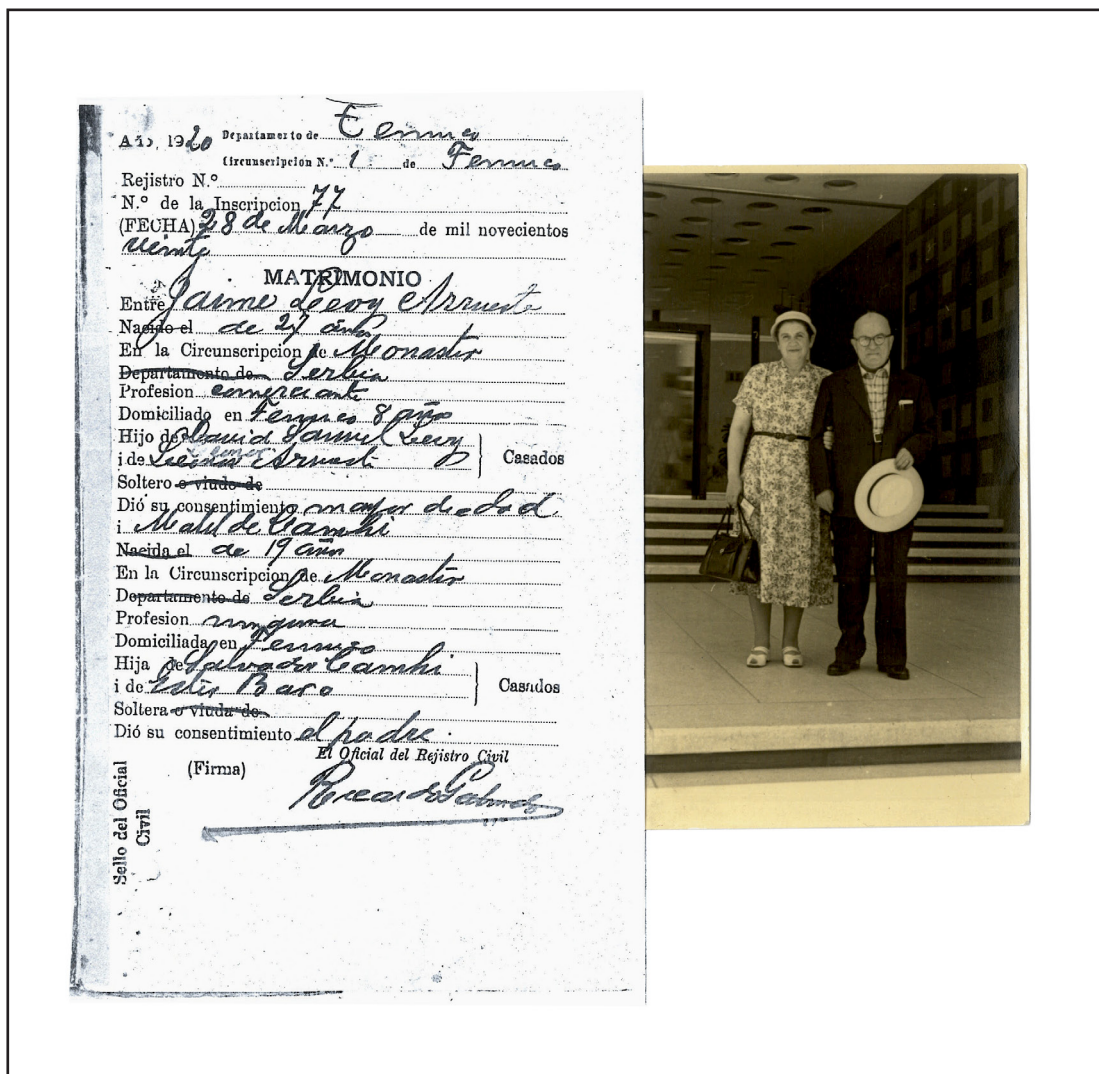 Año, 1920 Departamento de Temuco
Circunscripcion N.º 1 de Temuco
Rejistro N.º
N.º de la Inscripcion 77
(FECHA) 28 de Marzo de mil novecientos
veinte
MATRIMONIO
Entre Jaime Levy Arrueste
Nacido el de 27 años
En la Circunscripcion de Monastir
Departamento de Serbia
Profesion comerciante
Domiciliado en Temuco 8 año
Hijo de David Samuel Levy
i de Arruesti Casados
Soltero o viudo de
Dió su consentimiento mayor de edad
i Matilde Camhi
Nacida el de 19 años
En la Circunscripcion de Monastir
Departamento de Serbia
Profesion ninguna
Domiciliada en Temuco
Hija de Salvador Camhi
i de Ester Baro Casados
Soltera o viuda de
Dió su consentimiento el padre.
El Oficial del Rejistro Civil
(Firma)
Ricardo
Sello del Oficial
Civil